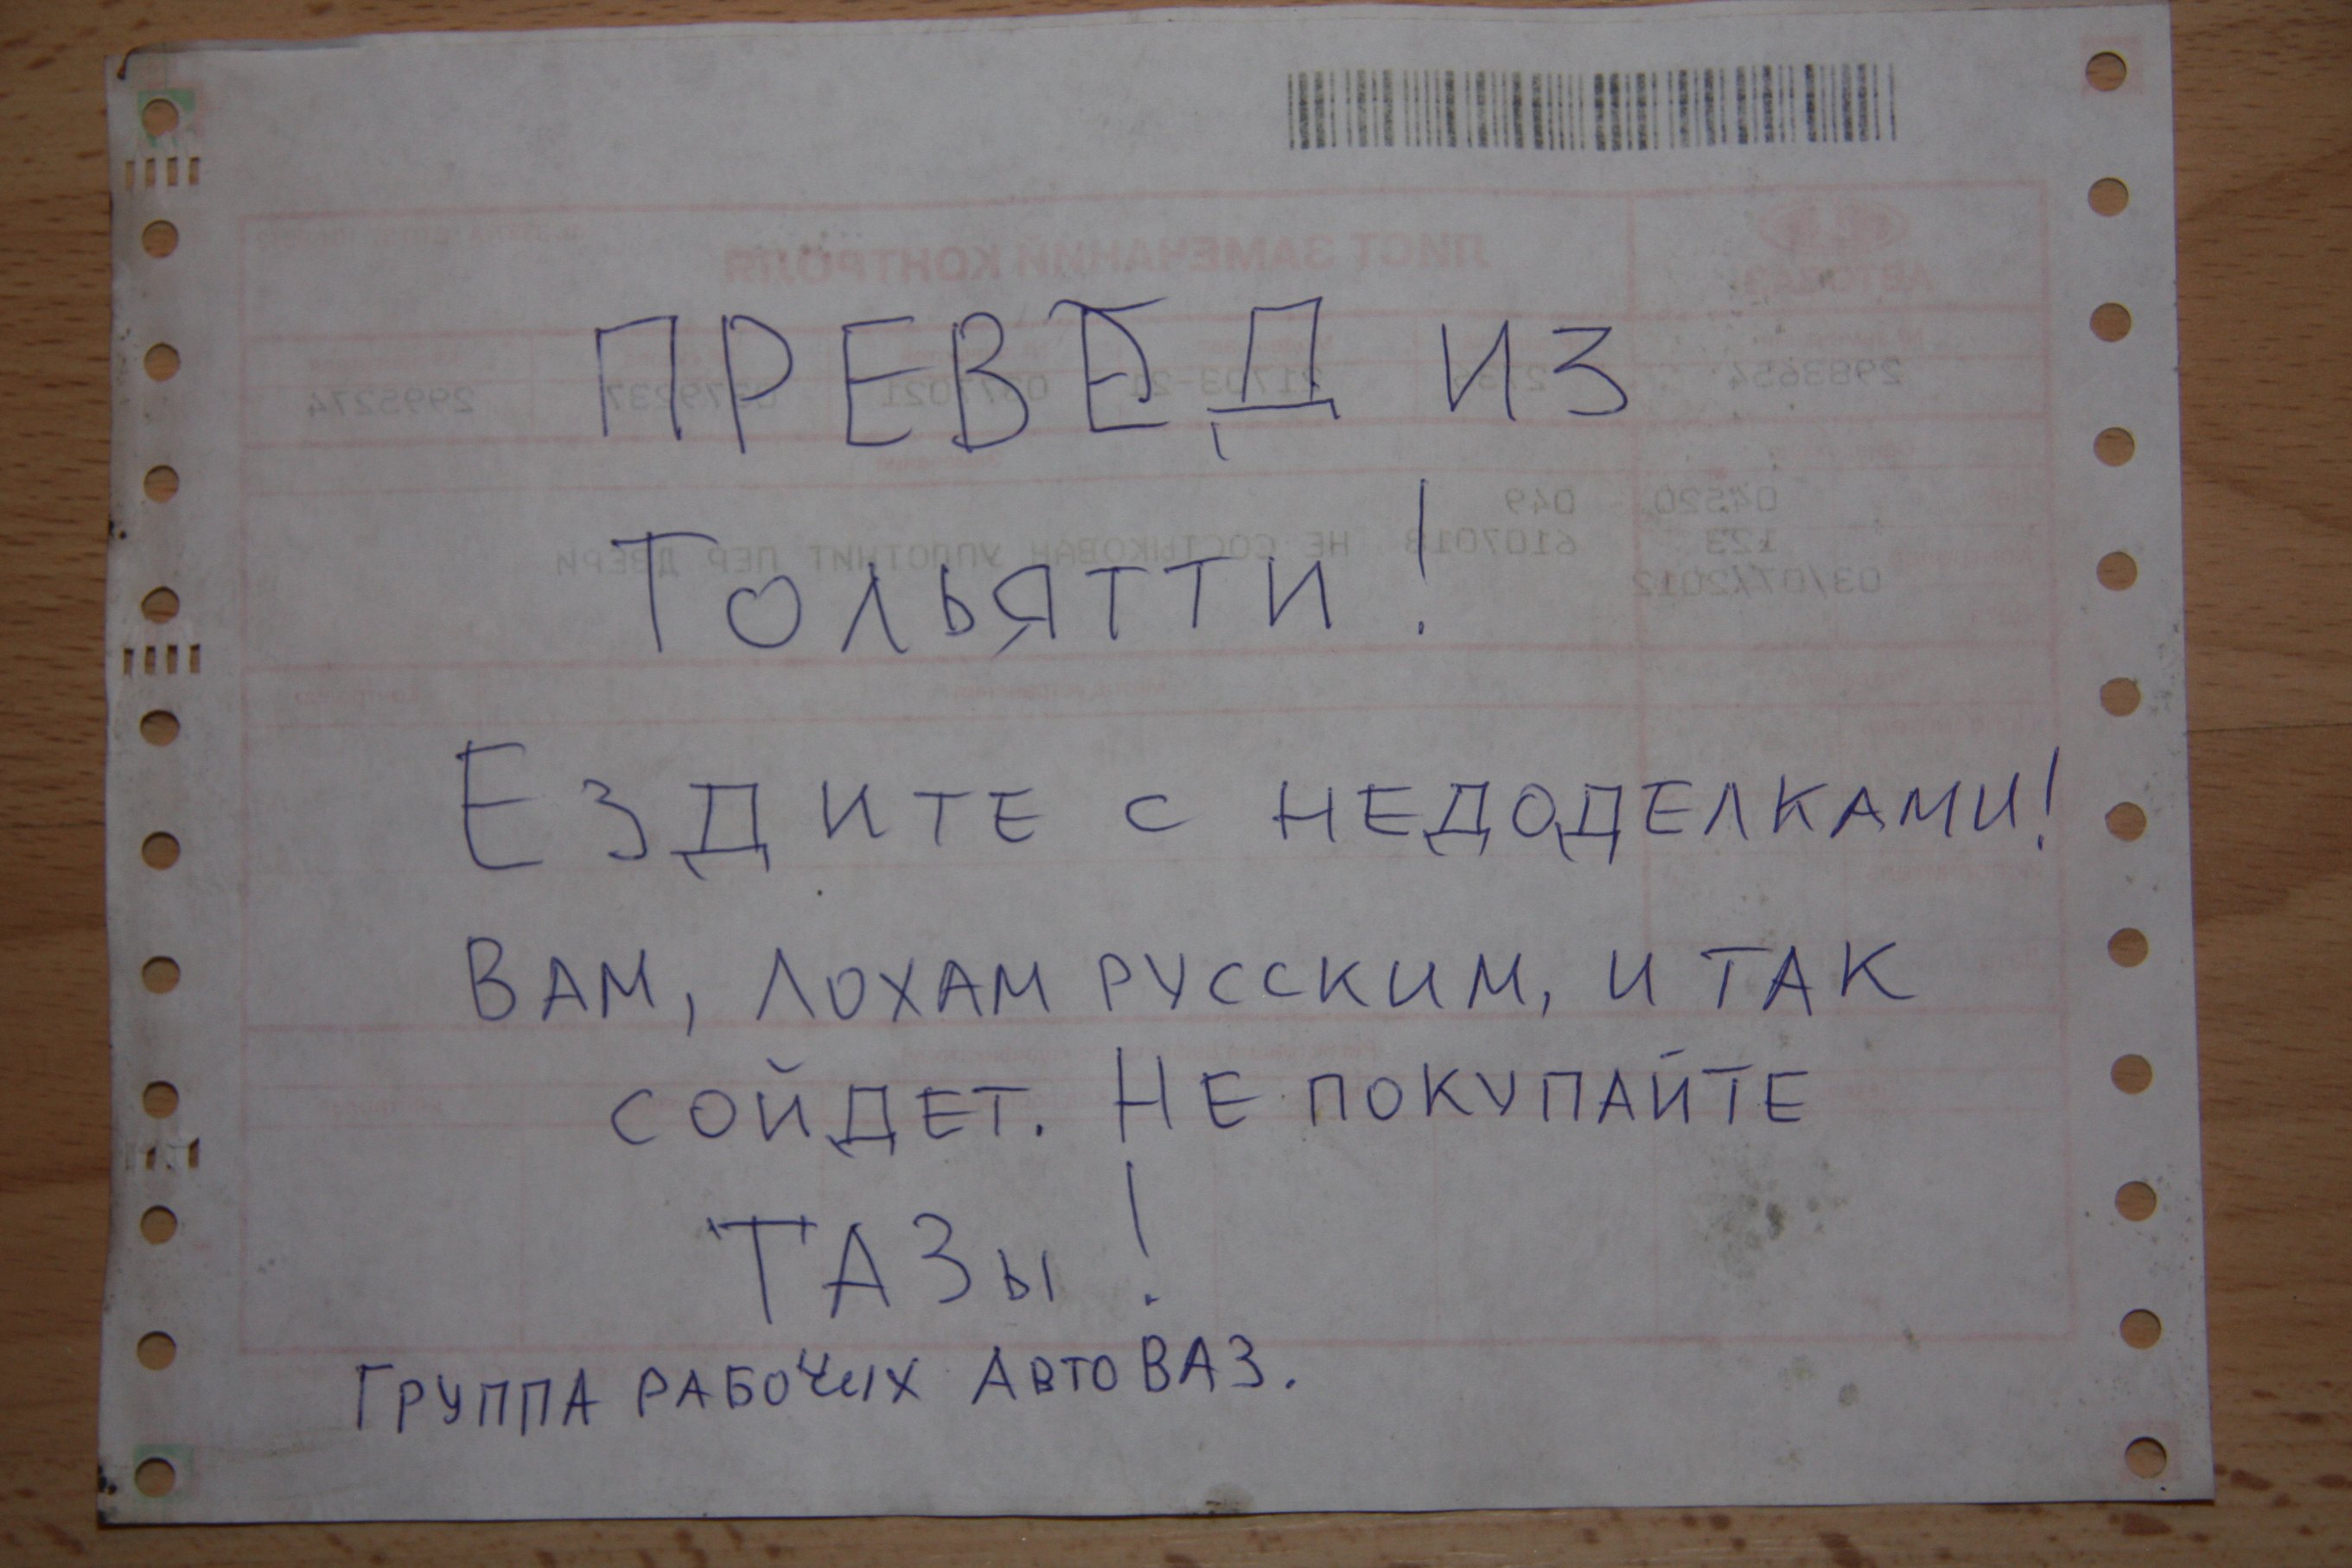 ПРЕВЕД ИЗ
ТОЛЬЯТТИ!
ЕЗДИТЕ С НЕДОДЕЛКАМИ!
ВАМ, ЛОХАМ РУССКИМ, И ТАК
СОЙДЕТ. НЕ ПОКУПАЙТЕ
ТАЗЫ!
ГРУППА РАБОЧИХ АВТОВАЗ.
ЛИСТ ЗАМЕЧАНИЙ КОНТРОЛЯ
АВТОВАЗ
2983654 21703-21 2995274
04520 049
123 6107018 НЕ СОСТЫКОВАН УПЛОТНИТ ПЕР ДВЕРИ
03/07/2012